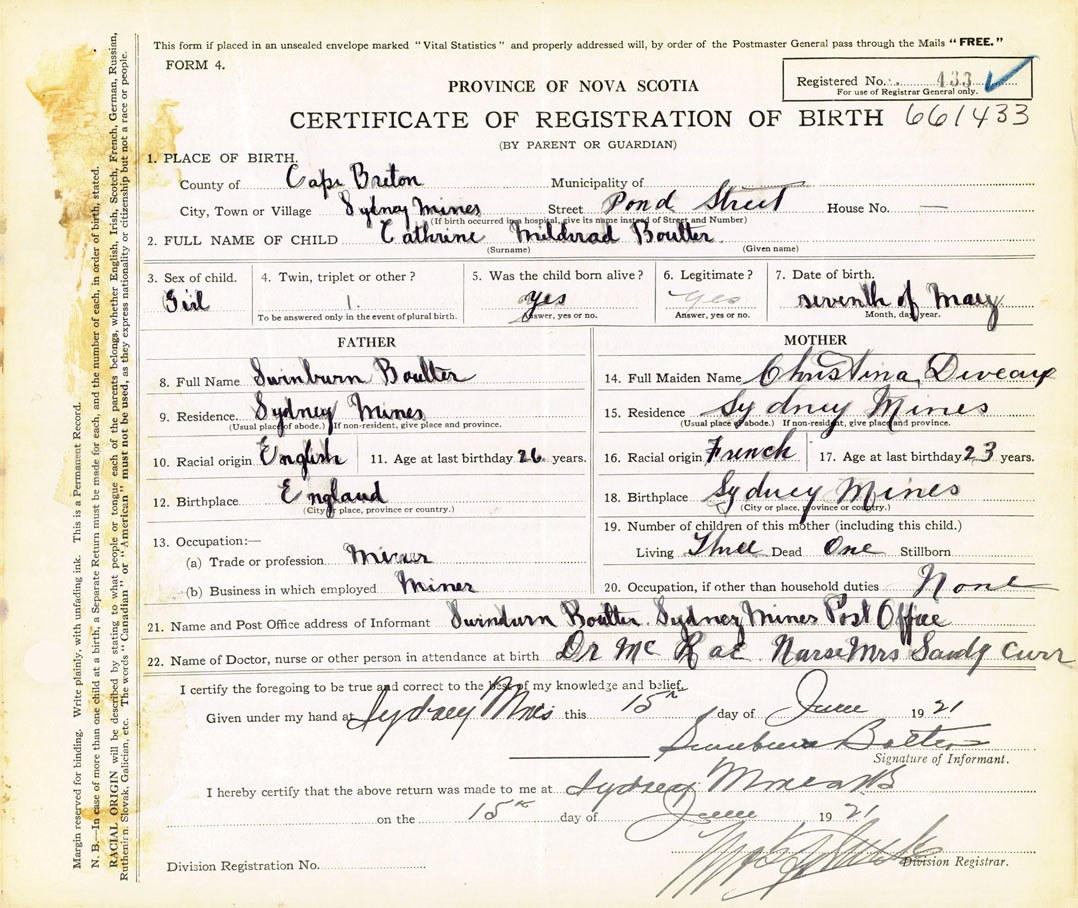 This form if placed in an unsealed envelope marked "Vital Statistics" and properly addressed will, by order of the Postmaster General pass through the Mails "FREE."
FORM 4.
Registered No. 433
For use of Registrar General only.
PROVINCE OF NOVA SCOTIA
CERTIFICATE OF REGISTRATION OF BIRTH 661433
(BY PARENT OR GUARDIAN)
1. PLACE OF BIRTH.
County of Cape Breton Municipality of
City, Town or Village Sydney Mines Street Pond Street House No. —
(If birth occurred in a hospital, give its name instead of Street and Number)
2. FULL NAME OF CHILD Cathrine Mildrad Boulter
(Surname) (Given name)
3. Sex of child. Girl
4. Twin, triplet or other? 1.
To be answered only in the event of plural birth.
5. Was the child born alive? yes
Answer, yes or no.
6. Legitimate? Yes
Answer, yes or no.
7. Date of birth. seventh of May
Month, day, year.
FATHER
8. Full Name Swinburn Boulter
9. Residence. Sydney Mines
(Usual place of abode.) If non-resident, give place and province.
10. Racial origin English 11. Age at last birthday 26 years.
12. Birthplace England
(City or place, province or country.)
13. Occupation:—
(a) Trade or profession Miner
(b) Business in which employed Miner
MOTHER
14. Full Maiden Name Christina Diveaux
15. Residence Sydney Mines
(Usual place of abode.) If non-resident, give place and province.
16. Racial origin French 17. Age at last birthday 23 years.
18. Birthplace Sydney Mines
(City or place, province or country.)
19. Number of children of this mother (including this child.)
Living Three Dead One Stillborn
20. Occupation, if other than household duties None
21. Name and Post Office address of Informant Swindurn Boulter. Sydney Mines Post Office
22. Name of Doctor, nurse or other person in attendance at birth Dr Mc Rae Nurse Mrs Sandy Curr
I certify the foregoing to be true and correct to the best of my knowledge and belief.
Given under my hand at Sydney Mines this 15th day of June 1921
Swinburn Bolter
Signature of Informant.
I hereby certify that the above return was made to me at Sydney Mines
on the 15th day of June 1921
Division Registrar.
Division Registration No.
Margin reserved for binding. Write plainly, with unfading ink. This is a Permanent Record.
N. B.—In case of more than one child at a birth, a Separate Return must be made for each, and the number of each, in order of birth, stated.
RACIAL ORIGIN will be described by stating to what people or tongue each of the parents belongs, whether English, Irish, Scotch, French, German, Russian,
Ruthenian, Slovak, Galician, etc. The words "Canadian" or "American" must not be used, as they express nationality or citizenship but not a race or people.